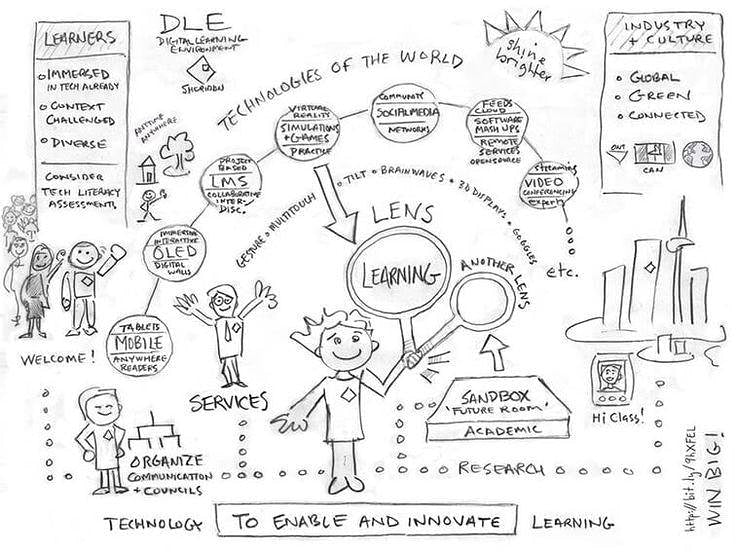 LEARNERS
IMMERSED
IN TECH ALREADY
CONTEXT
CHALLENGED
DIVERSE
CONSIDER
TECH LITERACY
ASSESSMENTS
DLE
DIGITAL LEARNING
ENVIRONMENT
SHERIDAN
ANYTIME
ANYWHERE
TECHNOLOGIES OF THE WORLD
Shine
brighter
INDUSTRY
+ CULTURE
GLOBAL
GREEN
CONNECTED
ONT
CAN
TABLETS
MOBILE
ANYWHERE
READERS
IMMERSIVE
INTERACTIVE
OLED
DIGITAL
WALLS
PROJECT
BASED
LMS
COLLABORATIVE
INTER-
DISC.
VIRTUAL
REALITY
SIMULATIONS
+ GAMES
PRACTICE
COMMUNITY
SOCIALMEDIA
NETWORKS
FEEDS
CLOUD
SOFTWARE
MASH UPS
REMOTE
SERVICES
OPENSOURCE
Streaming
VIDEO
CONFERENCING
experts
etc.
GESTURE • MULTITOUCH • TILT • BRAINWAVES • 3D DISPLAYS • GOGGLES
LENS
LEARNING
ANOTHER LENS
WELCOME!
SERVICES
SANDBOX
'FUTURE ROOM'
ACADEMIC
Hi Class!
ORGANIZE
COMMUNICATION
+ COUNCILS
RESEARCH
TECHNOLOGY TO ENABLE AND INNOVATE LEARNING
WIN BIG!